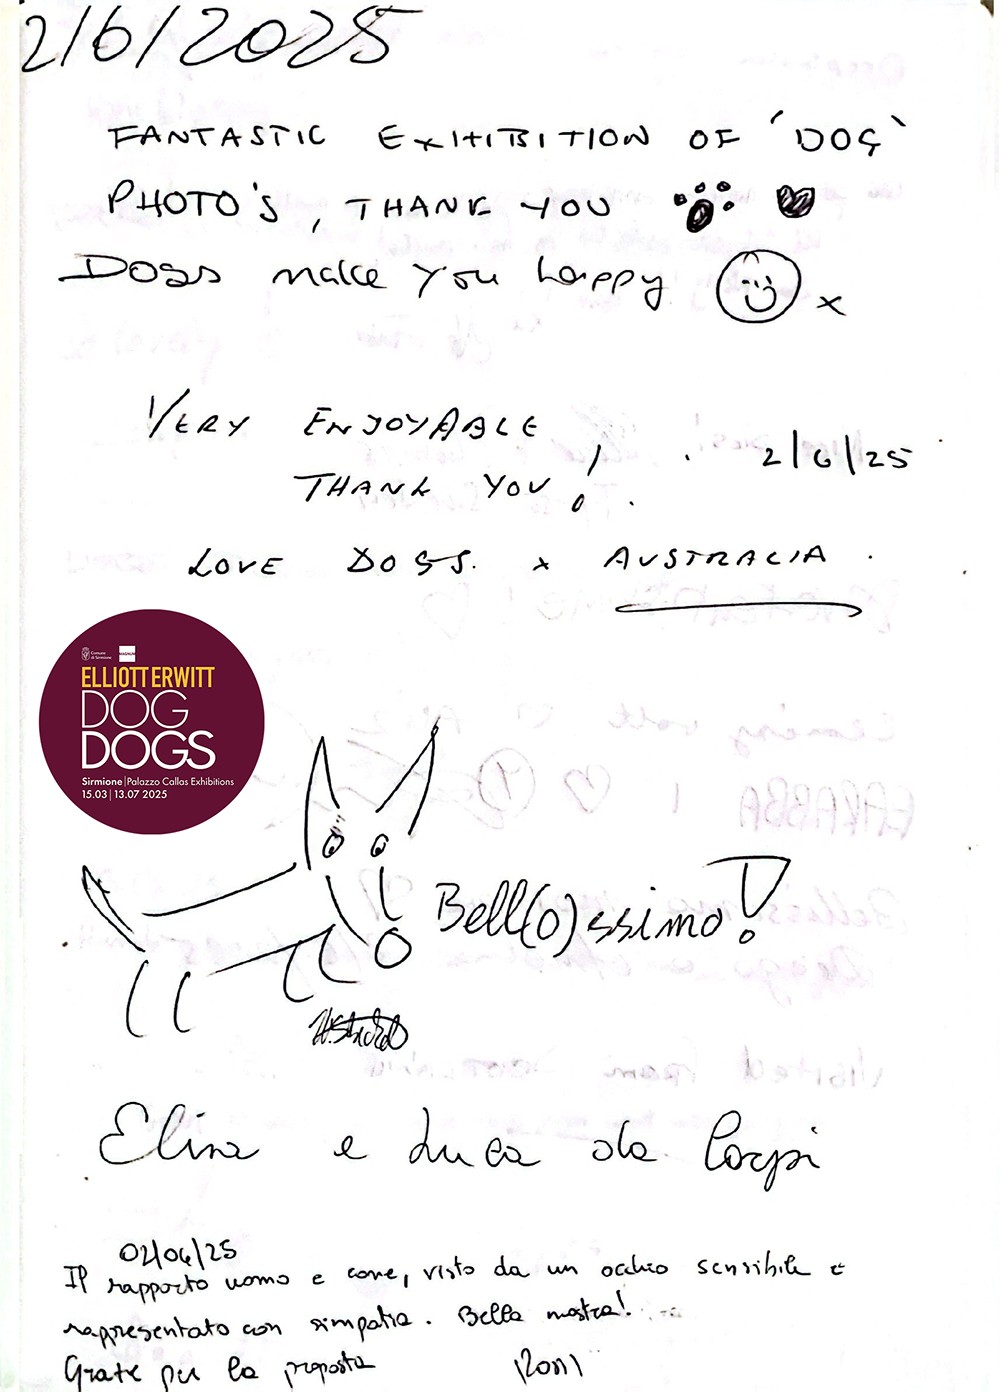 2/6/2025
FANTASTIC EXHIBITION OF 'DOG'
PHOTO'S, THANK YOU
DOGS make you happy x
VERY ENJOYABLE
THANK YOU!
2/6/25
LOVE DOGS. x AUSTRALIA.
Comune
di Sirmione
MAGNUM
ELLIOTT ERWITT
DOG
DOGS
Sirmione | Palazzo Callas Exhibitions
15.03 | 13.07 2025
Bell(o)ssimo!
Elisa e Luca da Carpi
02/06/25
Il rapporto uomo e cane, visto da un occhio sensibile e
rappresentato con simpatia. Bella mostra!
Grate per la proposta